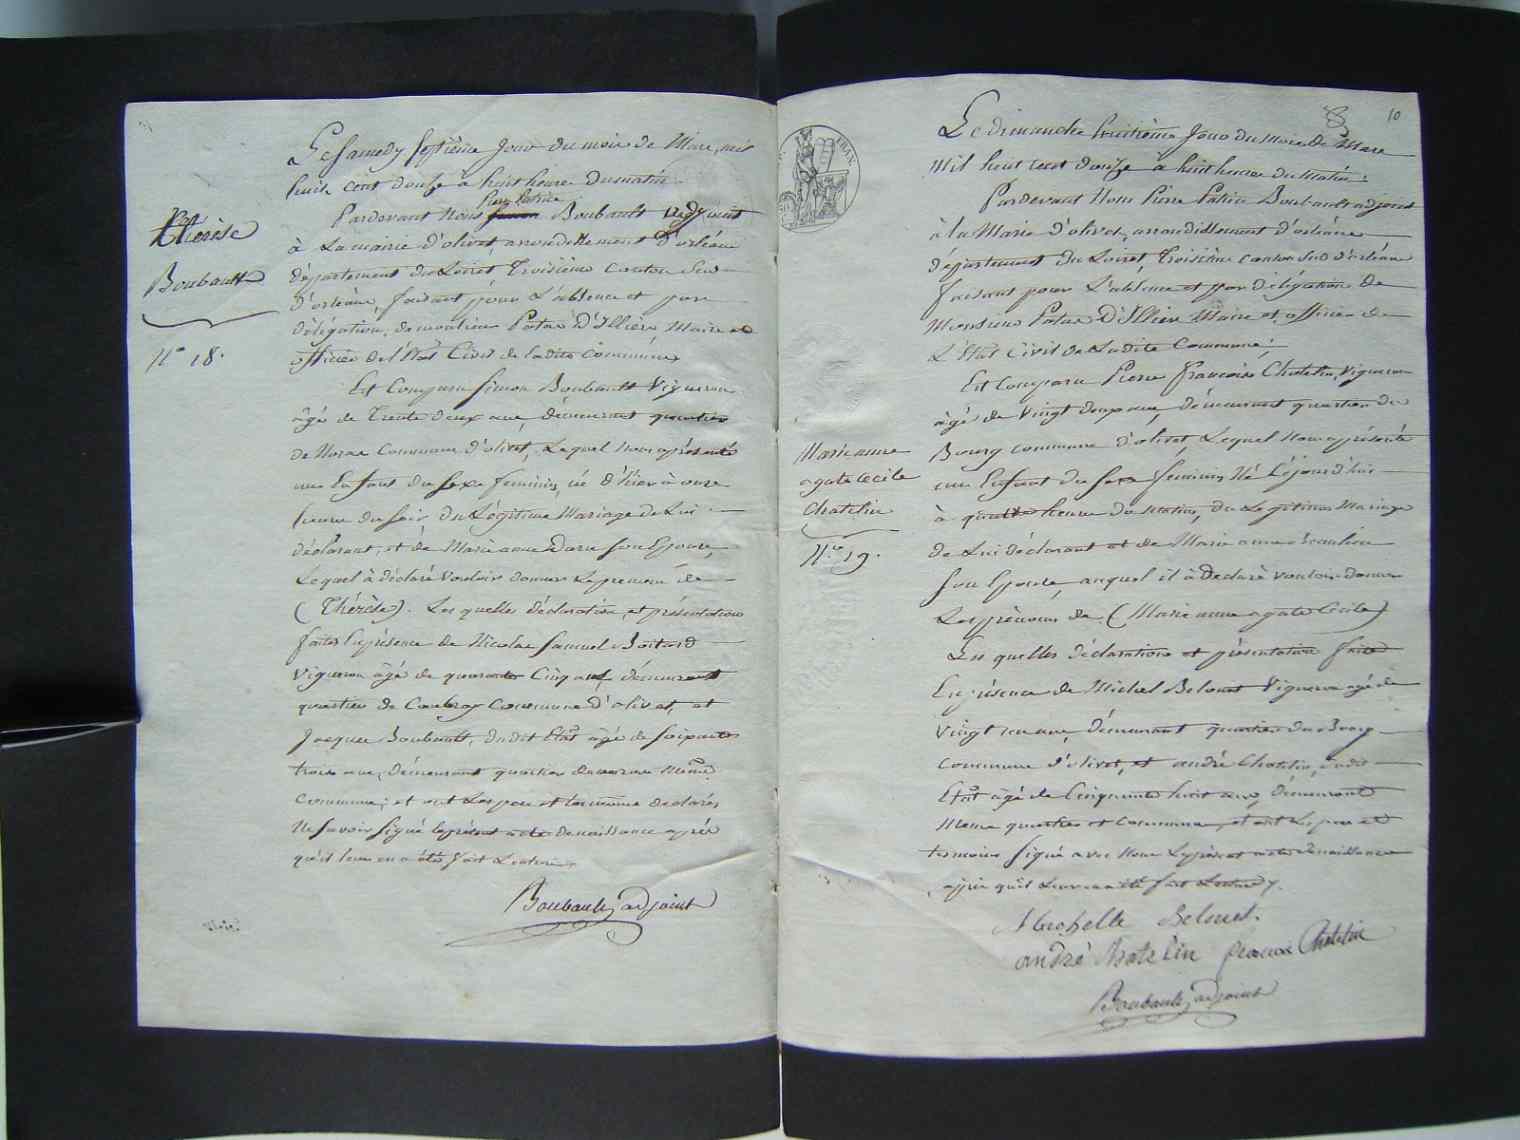 Thérèse
Boubault
N.º 18.
Le Samedy septième jour du mois de Mars, mil
huit cent douse à huit heure du matin
Pardevant nous Pierre Patrice Boubault adjoint
à La mairie d'olivet, arrondissement d'orléans
département du Loiret Troisième canton Sud
d'orléans, faisant pour L'absence et par
délégation, de monsieur Patas D'Illiers Maire et
officier de l'état Civil de Ladite Commune
Est Comparu Simon Boubault Vigneron
âgé de Trente deux ans, démeurant quartier
de Commune d'olivet, Lequel nous a présenté
une Enfant du Sexe feminin, né d'hier à onze
heure du soir, du Légitime Mariage de Lui
déclarant, et de Marie anne son Epouse,
Lequel à déclaré vouloir donner Le prenom de
(Thérèse). Les quelles déclaration et présentation
faites En présence de Nicolas Samuel Boitard
Vigneron âgé de quarante Cinq ans démeurant
quartier de Commune d'olivet, et
Jacques Boubault, dudit Etat âgé de soixante
trois ans, démeurant quartier de même
Commune; et ont Les pere et témoins declarés
Ne savoir signé le présent acte de naissance après
qu'il leur en a été fait Lecture.
Boubault, adjoint
8 10
FRAN
Marie anne
agate Cecile
Chatelin
N.º 19.
Le dimanche huitième Jour du Mois de Mars
Mil huit cent douze à huit heure du Matin;
Pardevant Nous Pierre Patrice Boubault adjoint
à la Mairie d'olivet, arrondissement d'orléans
département du Loiret, Troisième canton Sud d'orléans
faisant pour L'absence et par délégation de
Monsieur Patas D'Illiers Maire et officier de
L'état Civil de Ladite Commune;
Est Comparu Pierre François Chatelin, Vigneron
âgé de Vingt deux ans, démeurant quartier du
Bourg commune d'olivet, Lequel Nous a présenté
une Enfant du Sexe féminin, Né Cejourd'hui
à quatre heure du Matin, du Légitime Mariage
de Lui déclarant et de Marie anne Beaulieu
son Epouse, auquel il à déclaré vouloir donner
Les prénoms de (Marie anne agate Cecile)
Les quelles déclaration et présentation faite
En présence de Michel Belouet Vigneron agé de
Vingt ans, démeurant quartier du Bourg
Commune d'olivet, et andré Chatelin, dudit
Etat âgé de Cinquante huit ans, démeurant
Meme quartier et Commune, et ont Le pere et
temoins signé avec Nous Le présent acte de naissance
après qu'il Leur en a été fait Lecture.
Michelle Belouet.
andré Chatelin françois Chatelin
Boubault, adjoint